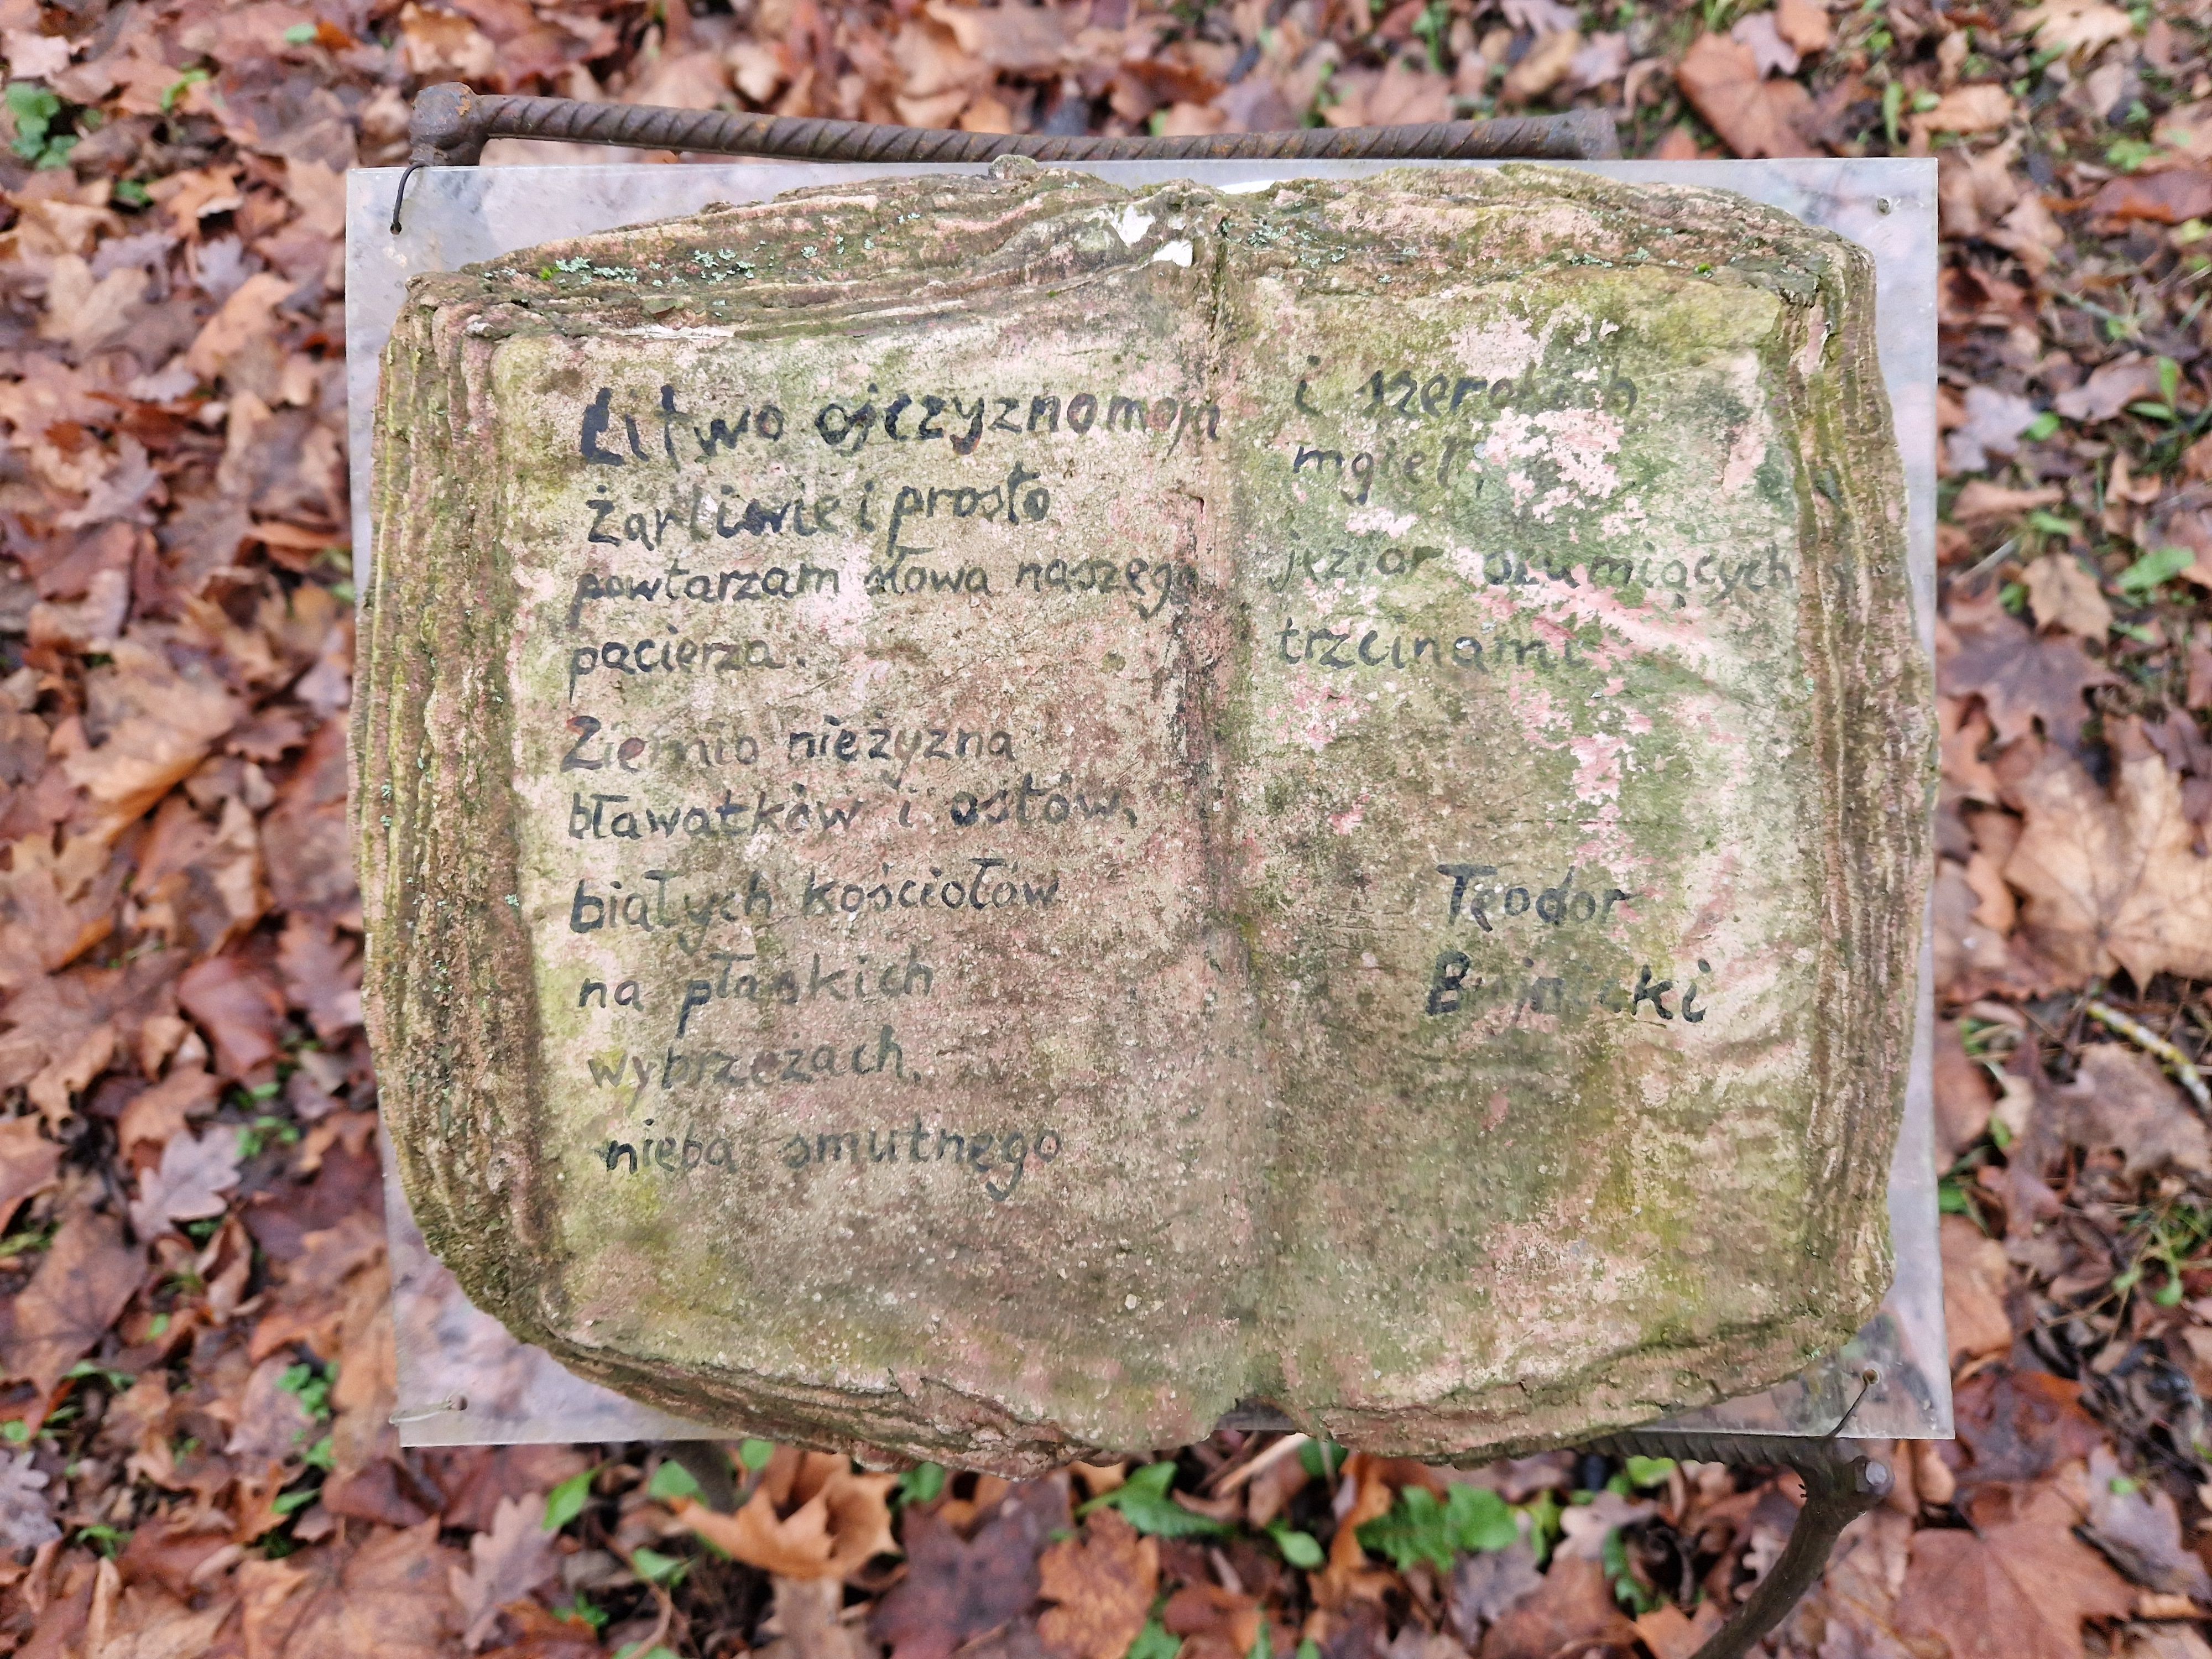 Litwo ojczyznomoja
Żarliwie i prosto
powtarzam słowa naszego
pacierza.
Ziemio nieżyzna
bławatków i ostów,
białych kościołów
na płaskich
wybrzeżach,
nieba smutnego
i szerokich
mgieł,
jezior szumiących
trzcinami
Teodor
Bujnicki